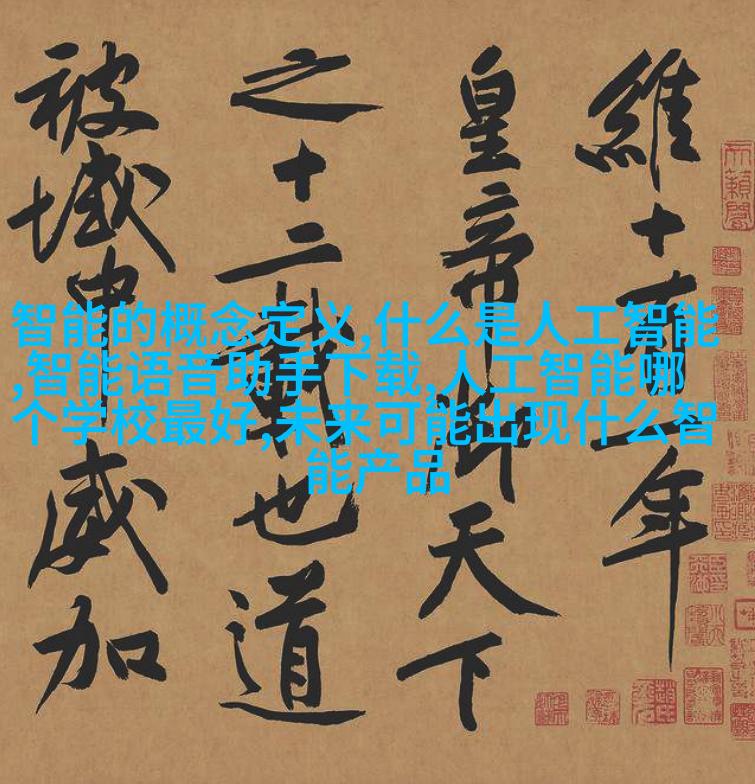 維十有一年
皇帝御天下
之十二載也道
被域中威加
智能的概念定义,什么是人工智能
,智能语音助手下载,人工智能哪
个学校最好,未来可能出现什么智
能产品